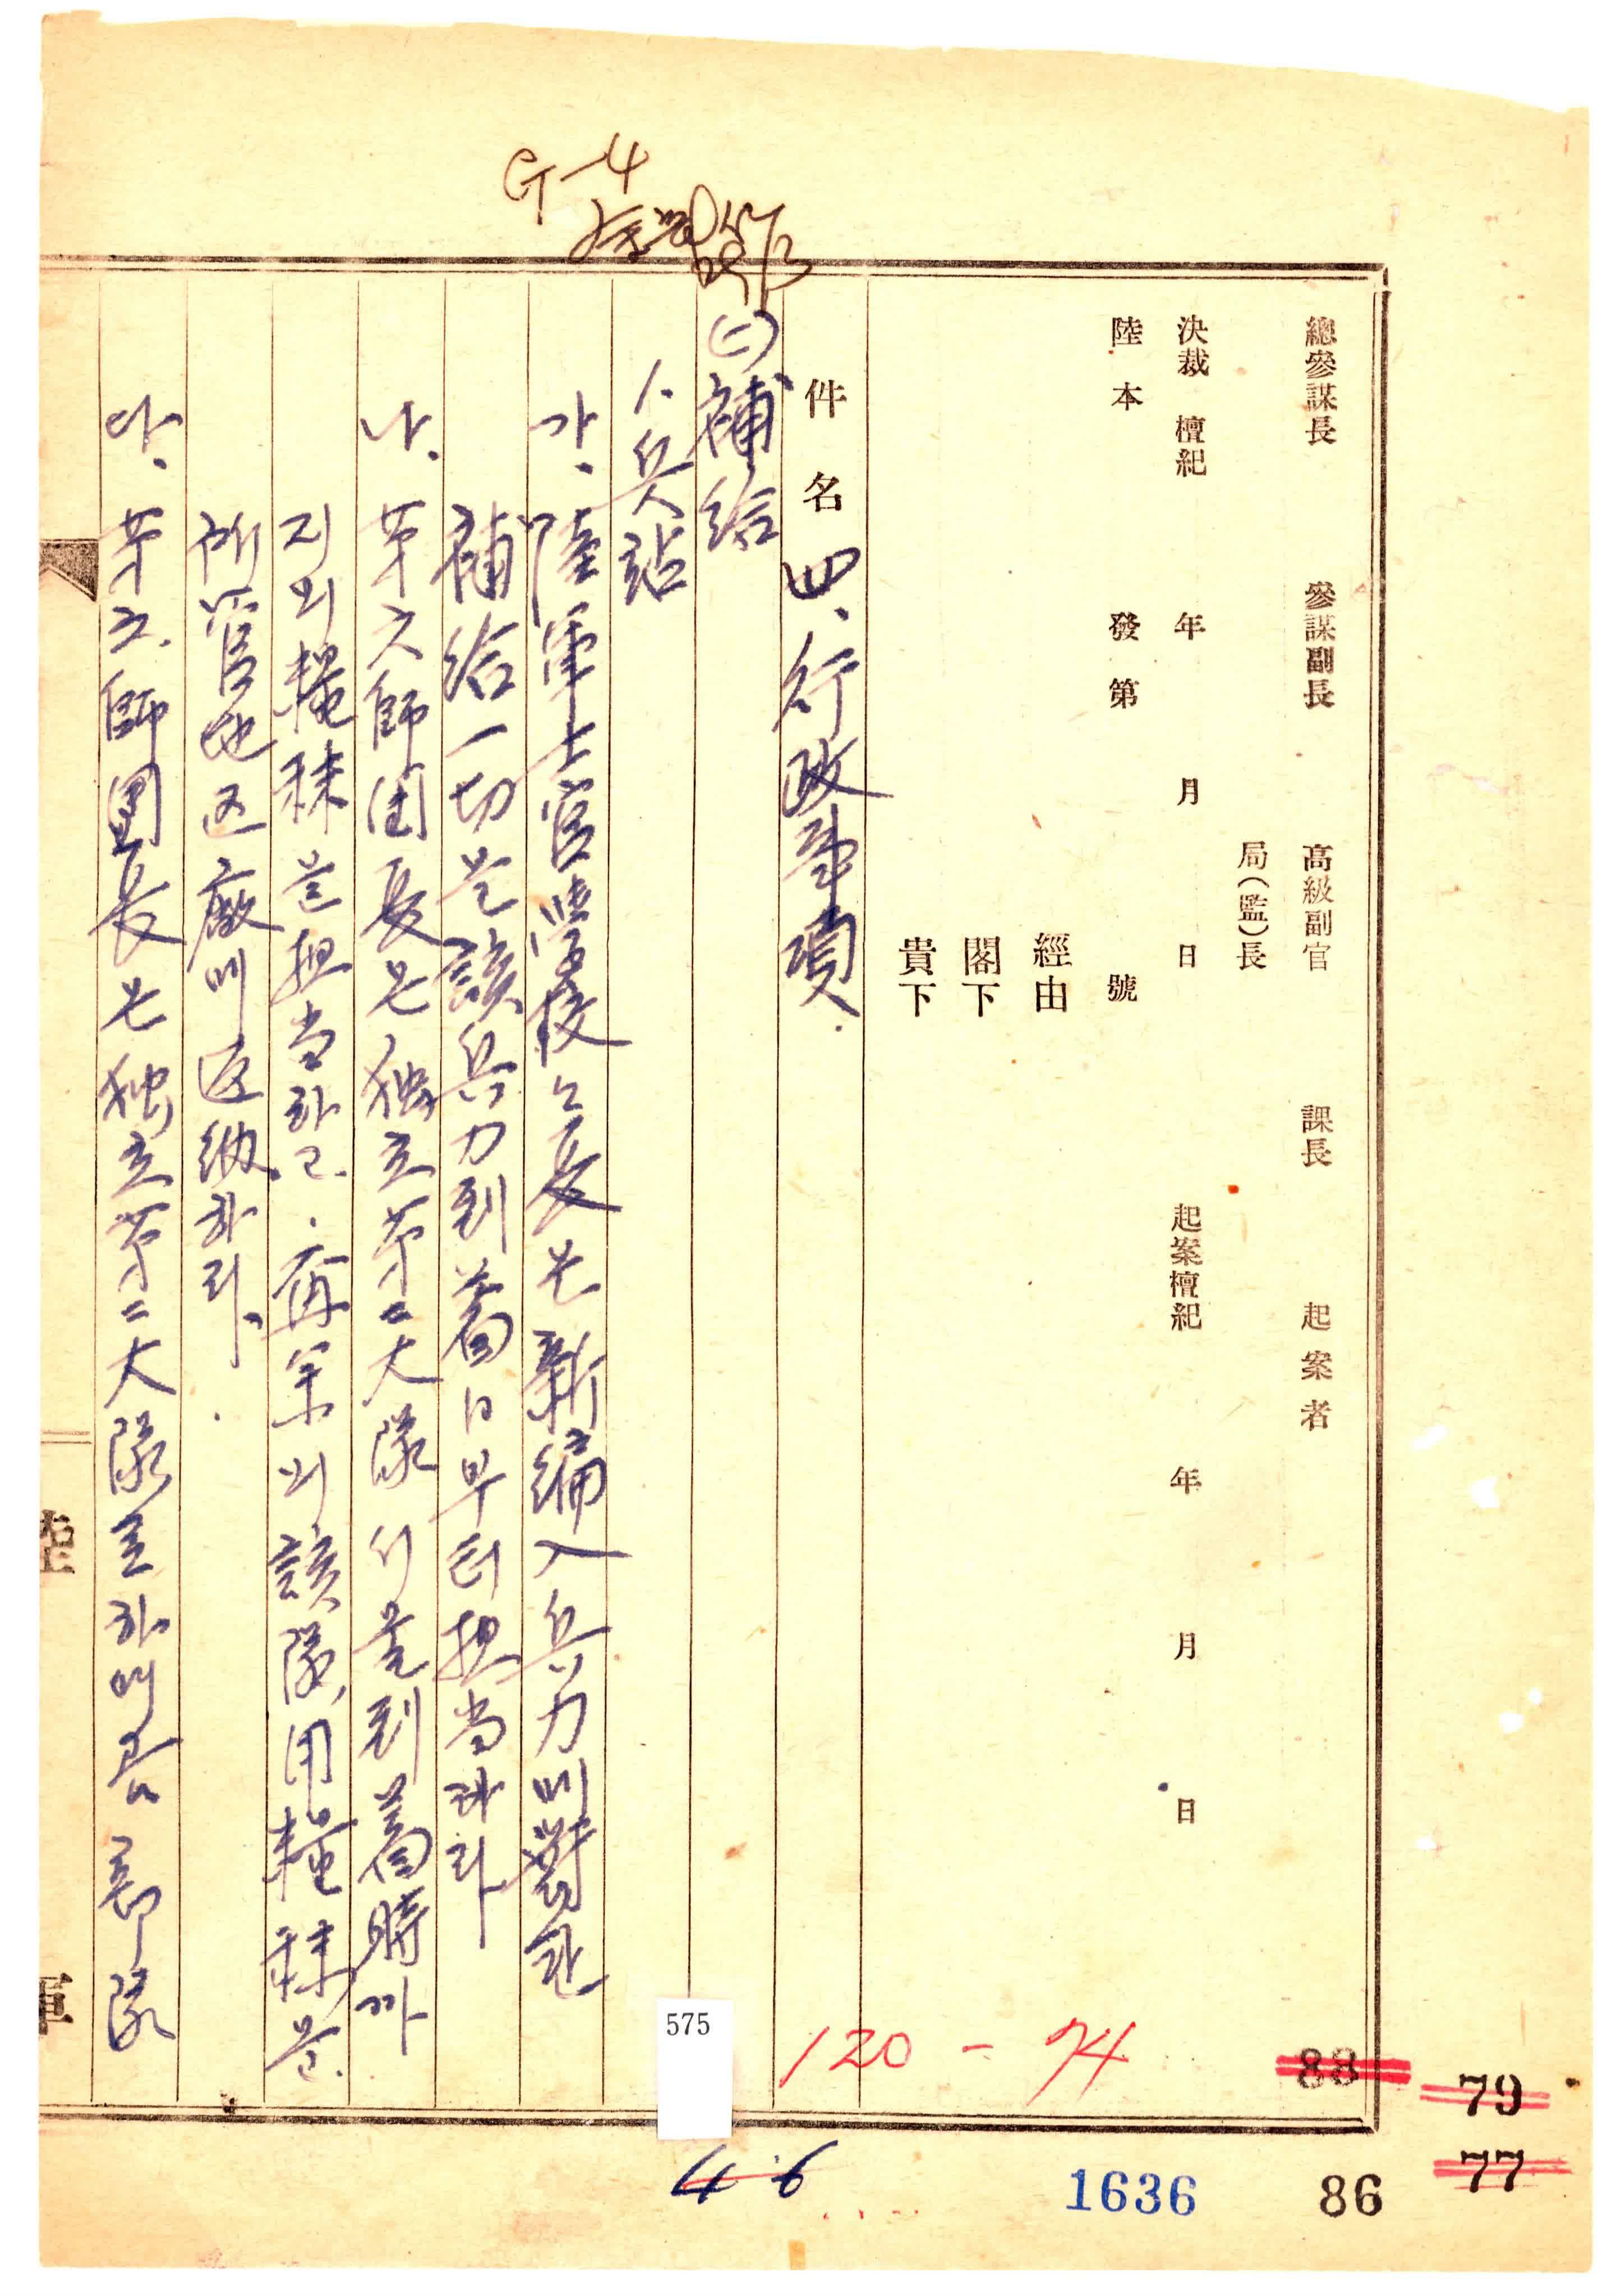 G-4
總參謀長 參謀副長 高級副官 課長 起案者
局(監)長
決裁 檀紀 年 月 日 起案檀紀 年 月 日
陸本 發第 號
經由
閣下
貴下
件名 四、行政事項.
(二)補給
1. 兵站
가、陸軍士官學校々長은 新編入兵力에 對한
補給一切를 該兵力到着日부터 担当하라
나. 第六師團長은 独立第二大隊 이 到着時까
지의 糧秣을 担当하고. 再来의 該隊用糧秣은
所管地区廠에 返納하라.
다、第六師團長은 独立第二大隊로 하여금 部隊
陸
軍
575
120 - 74
88
79
77
4.6
1636
86